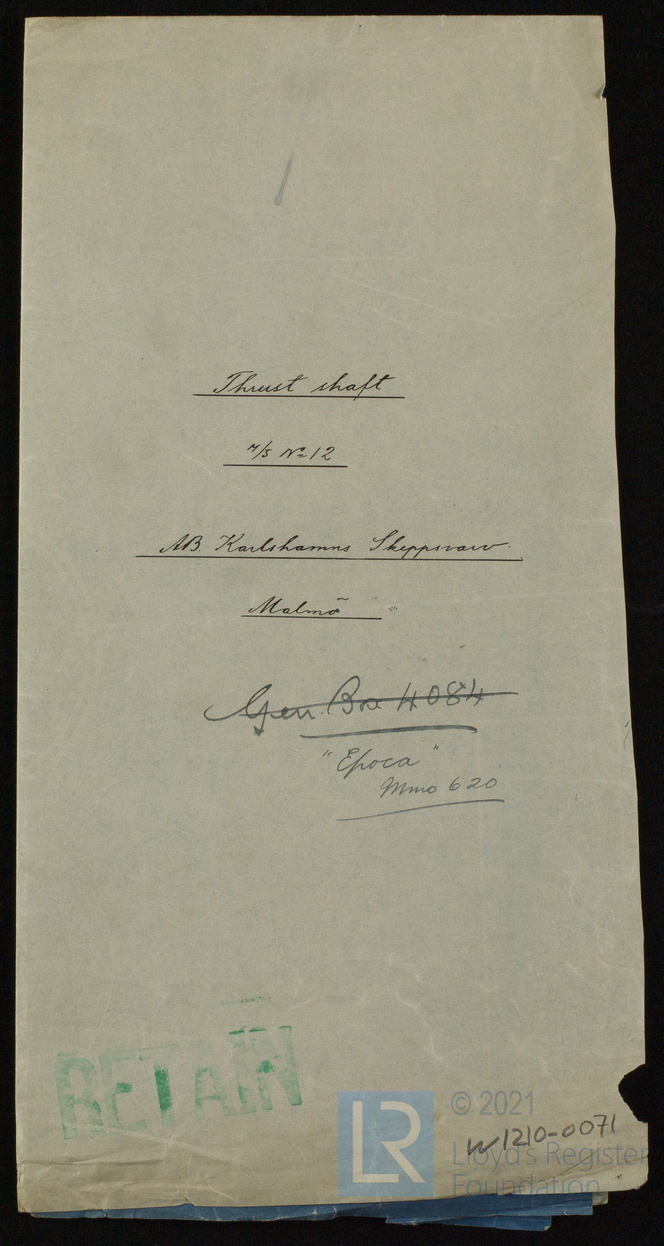 Thrust shaft
M/S No 12
AB. Karlshamns Skeppsvarv.
Malmö
Gen. Box 4084
"Epoca"
Mmo 620
RETAIN
LR
© 2021
W1210-0071
Lloyd's Register
Foundation